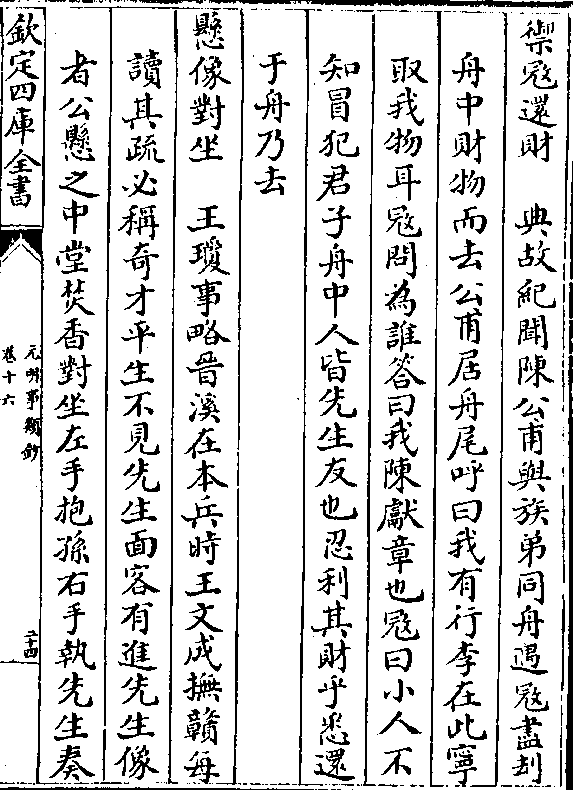 禦冦還財　典故紀聞陳公甫與族弟同舟遇冦盡刦
舟中財物而去公甫居舟尾呼曰我有行李在此寧
取我物耳冦問為誰答曰我陳獻章也冦曰小人不
知冒犯君子舟中人皆先生友也忍利其財乎悉還
于舟乃去
懸像對坐　王瓊事略晉溪在本兵時王文成撫贛每
讀其疏必稱奇才平生不見先生面客有進先生像
者公懸之中堂焚香對坐左手抱孫右手執先生奏
欽定四庫全書
元明事類鈔
卷十六
二十四